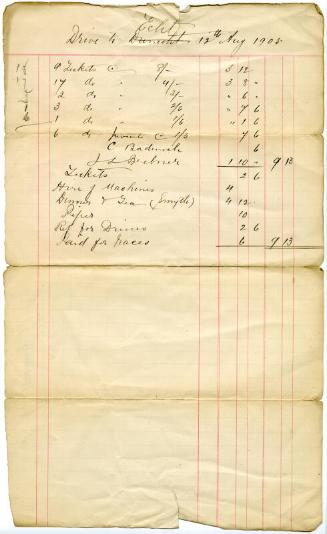 Echt
Drive to Dunecht 12th Aug 1905
9 Tickets C 8/- 3 12
17 do " 4/- 3 8 "
2 do " 3/- " 6 "
3 do " 2/6 " 7 6
1 do " 1/6 " 1 6
6 do C 1/3 7 6
C 6
J S 1 10 " 9 13
Tickets 2 6
Hire of Machines 4
Dinner & Tea (Smyth) 4 12
Pipes 10
for Drivers 2 6
Paid for Races 6 9 13